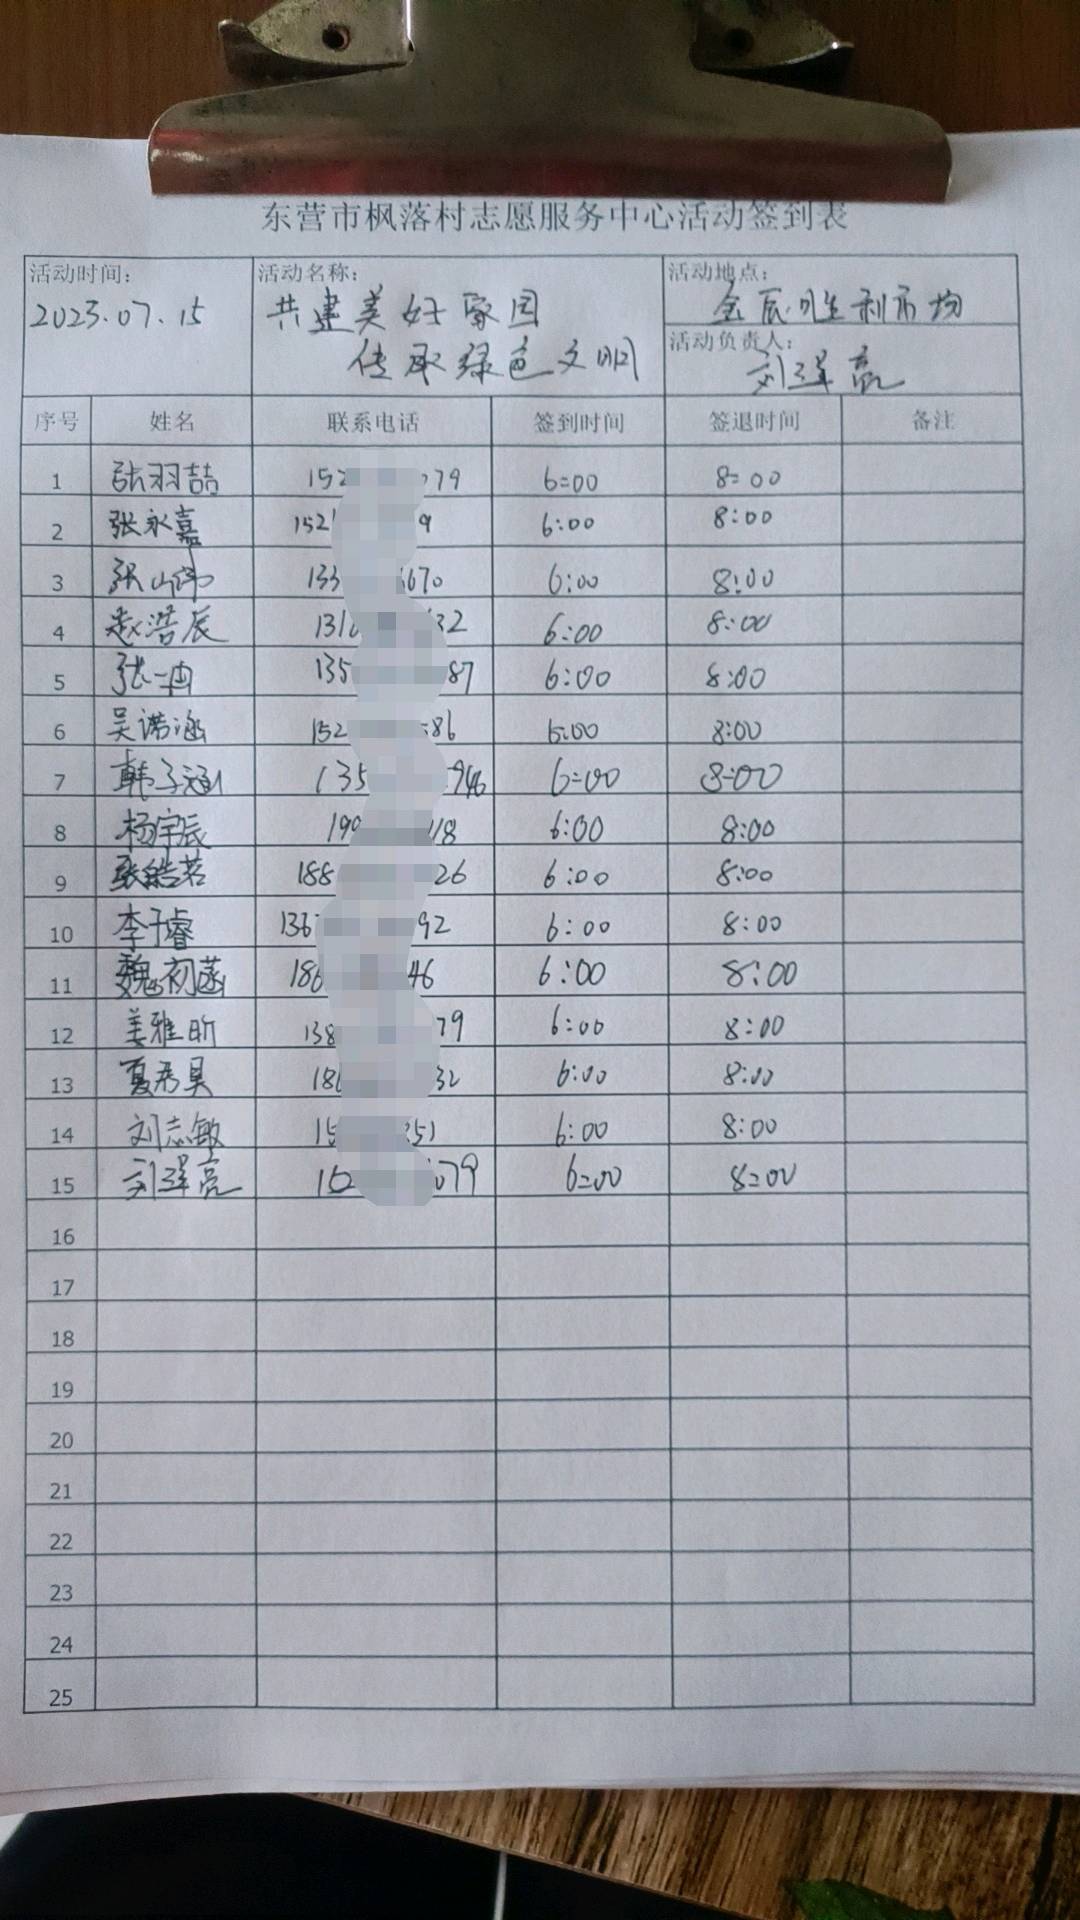 东营市枫落村志愿服务中心活动签到表
活动时间: 活动名称: 活动地点:
2023.07.15 共建美好家园 金辰胜利市场
传承绿色文明
活动负责人:
刘泽亮
序号 姓名 联系电话 签到时间 签退时间 备注
1 张羽喆 152 79 6:00 8:00
2 张永嘉 152 9 6:00 8:00
3 张 133 670 6:00 8:00
4 赵浩辰 131 32 6:00 8:00
5 张一冉 135 87 6:00 8:00
6 吴诺涵 152 86 6:00 8:00
7 韩子涵 135 946 6:00 8:00
8 杨宇辰 199 18 6:00 8:00
9 张皓若 188 26 6:00 8:00
10 李子睿 136 92 6:00 8:00
11 魏初菡 186 46 6:00 8:00
12 姜雅昕 138 79 6:00 8:00
13 夏希昊 18 32 6:00 8:00
14 刘志敏 15 51 6:00 8:00
15 刘泽亮 152 079 6:00 8:00
16
17
18
19
20
21
22
23
24
25